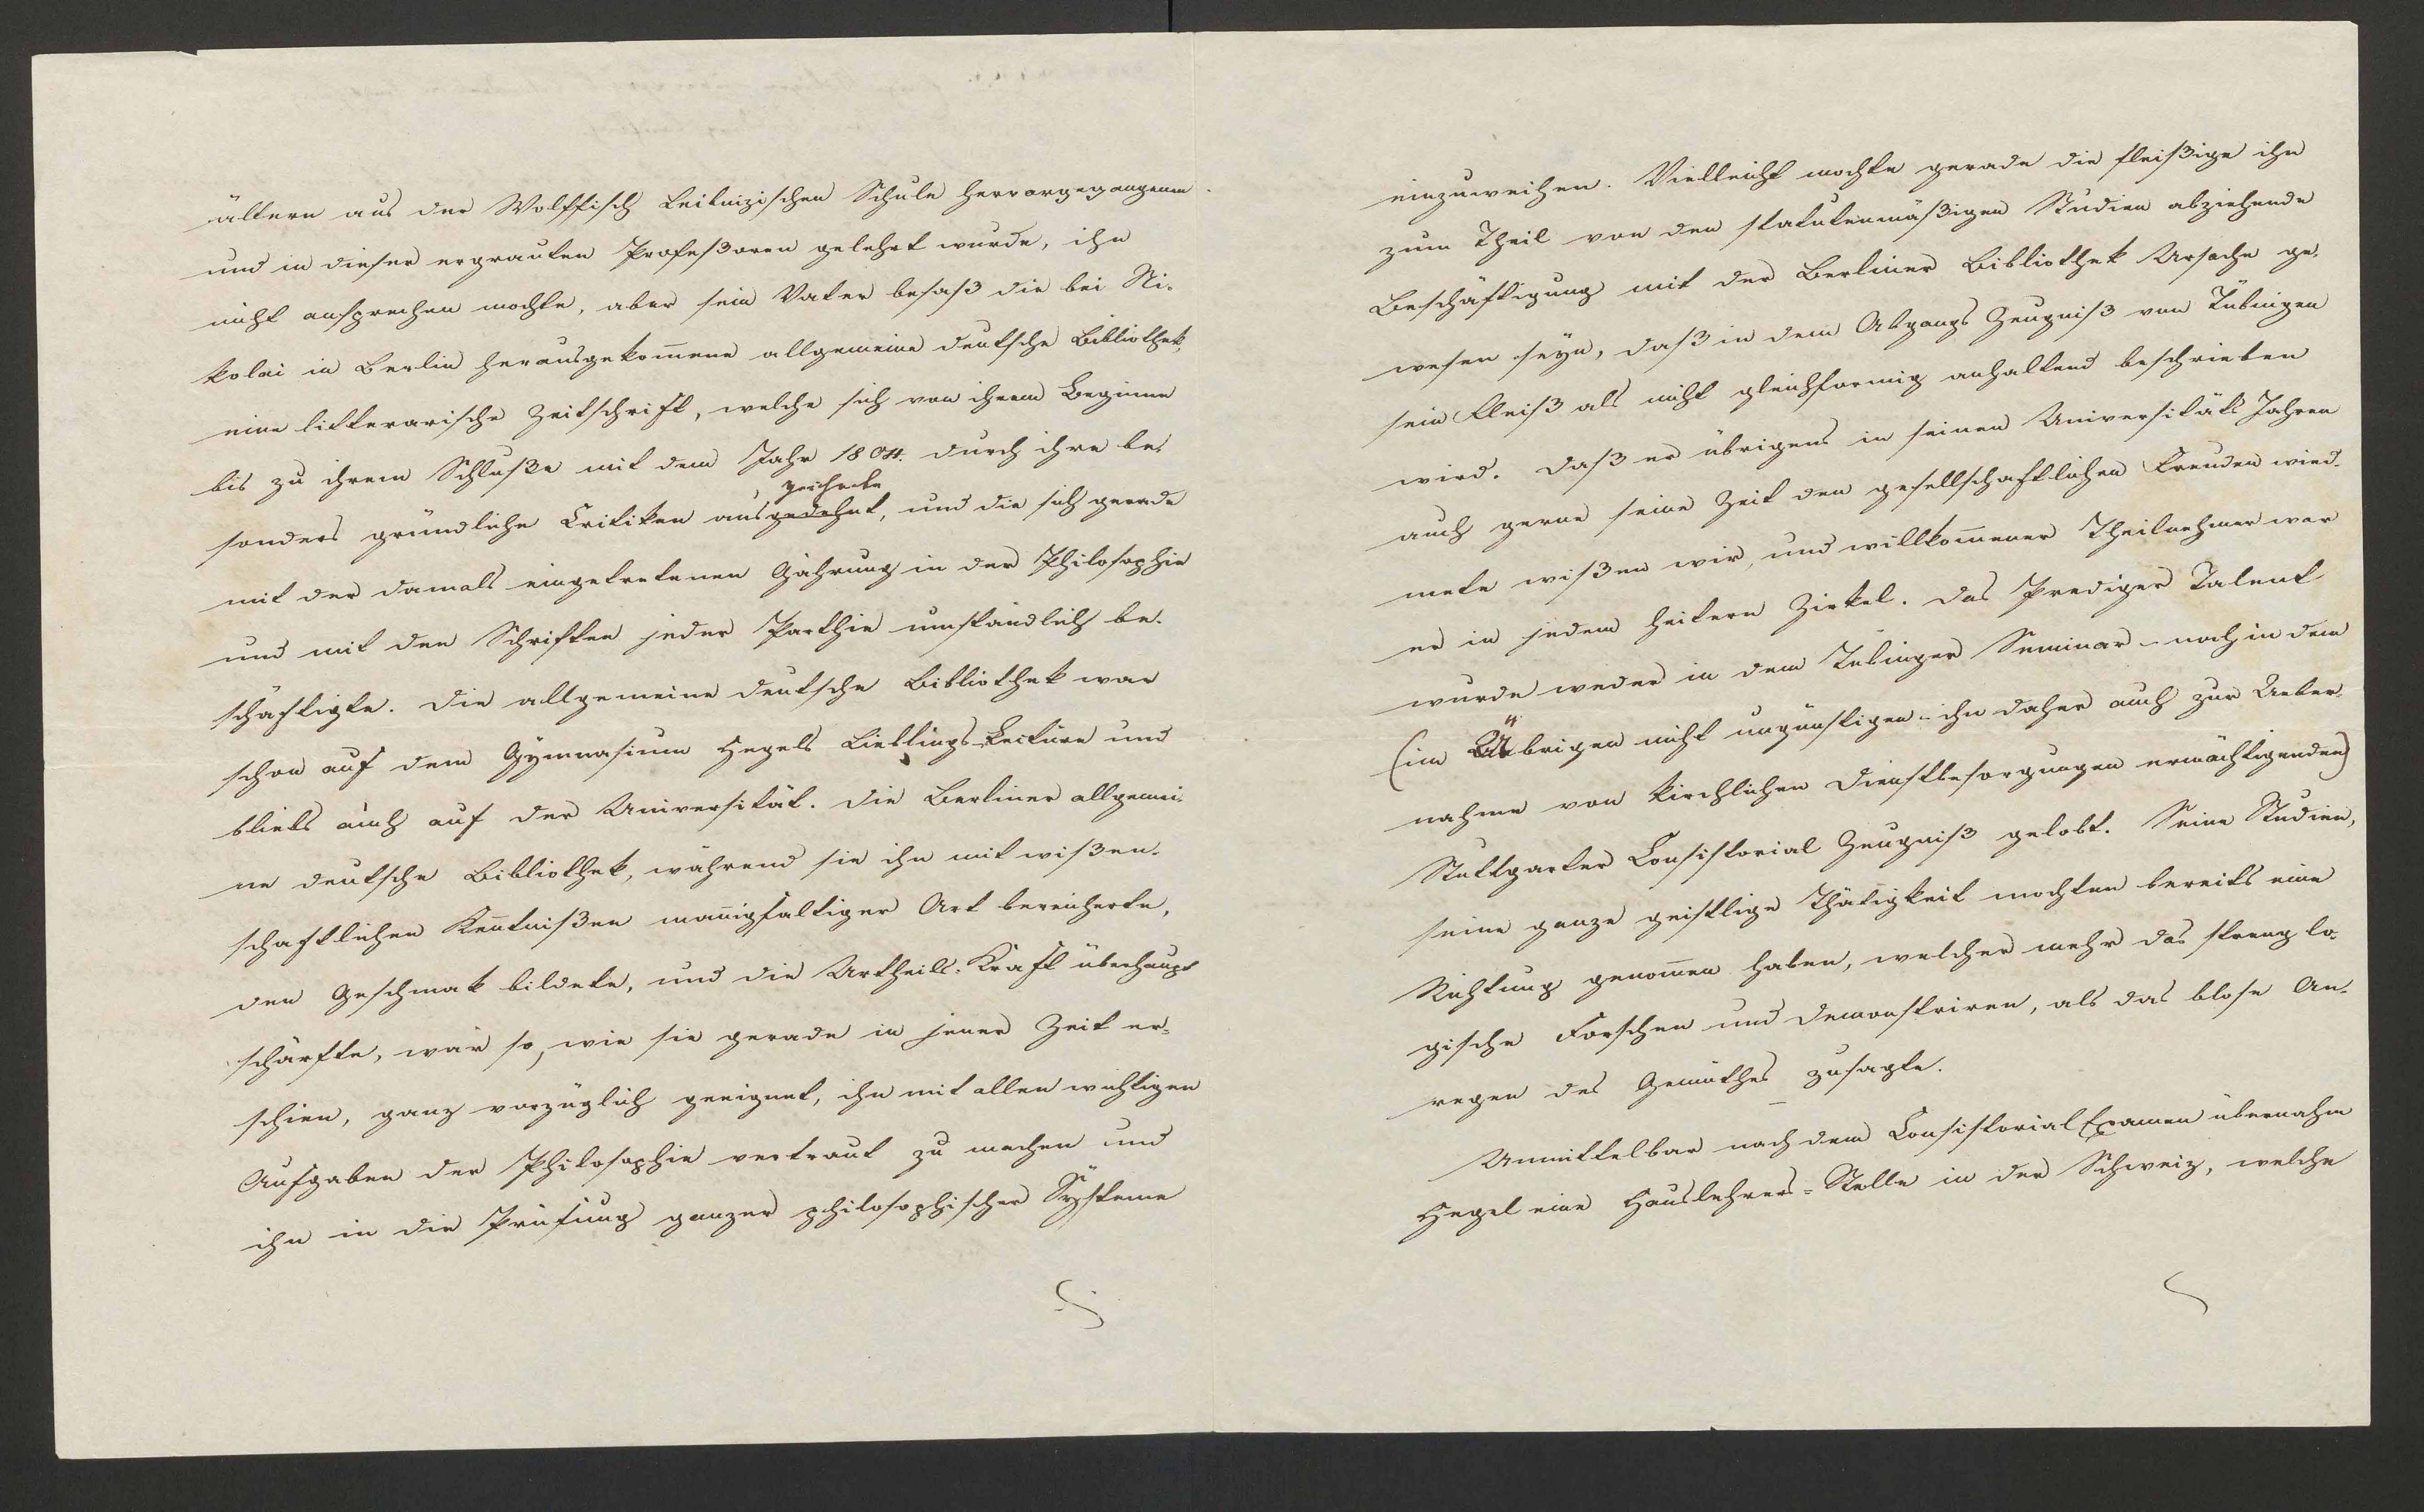 ältern aus der Wolffisch Leibnizischen Schule hervorgegangenen
und in dieser ergrauten Profeßoren gelehrt wurde, ihn
nicht ansprechen mochte, aber sein Vater besaß die bei Ni-
kolai in Berlin herausgekom̄ene allgemeine deutsche Bibliothek,
eine litterarische Zeitschrift, welche sich von ihrem Beginne
bis zu ihrem Schluße mit dem Jahr 1804. durch ihre be-
zeichnete
sonders gründliche Critiken ausgedehnt, und die sich gerade
mit der damals eingetretenen Gährung in der Philosophie
und mit den Schriften jeder Parthie umständlich be-
schäftigte. Die allgemeine deutsche Bibliothek war
schon auf dem Gymnasium Hegels Lieblings-Lectüre und
bliebs auch auf der Universität. Die Berliner allgemei-
ne deutsche Bibliothek, während sie ihn mit wißen-
schaftlichen Ken̄tnißen man̄igfaltiger Art bereicherte,
den Geschmak bildete, und die Urtheils-Kraft überhaupt
schärfte, war so, wie sie gerade in jener Zeit er-
schien, ganz vorzüglich geeignet, ihn mit allen wichtigen
Aufgaben der Philosophie vertraut zu machen und
ihn in die Prüfung ganzer philosophischer Systeme
einzuweihen. Vielleicht mochte gerade die fleißige ihn
zum Theil von den statutenmäßigen Studien abziehende
Beschäftigung mit der Berliner Bibliothek Ursache ge-
wesen seyn, daß in dem Abgangs Zeugniß von Tübingen
sein Fleiß als nicht gleichformig anhaltend beschrieben
wird. Daß er übrigens in seinen Universitäts Jahren
auch gerne seine Zeit den gesellschaftlichen Freuden wied-
mete wißen wir, und willkom̄ener Theilnehmer war
er in jedem heitern Zirkel. Das Prediger Talent
wurde weder in dem Tübinger Seminar- noch in dem
(im Übrigen nicht ungünstigen- ihn daher auch zur Ueber-
nahme von kirchlichen Dienstbesorgungen ermächtigenden)
Stuttgarter Consistorial Zeugniß gelobt. Seine Studien,
seine ganze geistige Thätigkeit mochten bereits eine
Richtung genom̄en haben, welcher mehr das streng lo-
gische Forschen und Demonstriren, als das blose An-
regen des Gemüthes zusagte.
Unmittelbar nach dem Consistorial Examen übernahm
Hegel eine Hauslehrers-Stelle in der Schweiz, welche